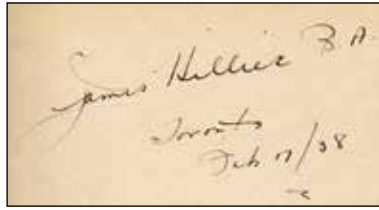 James Hillier B.A.
Toronto
Feb 17/38